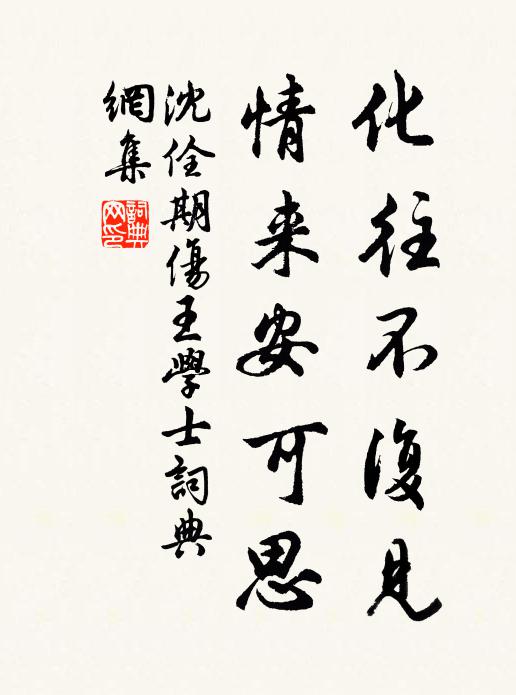 化往不復見
情来安可思
沈佺期傷王學士詞典
網集
詞典網印